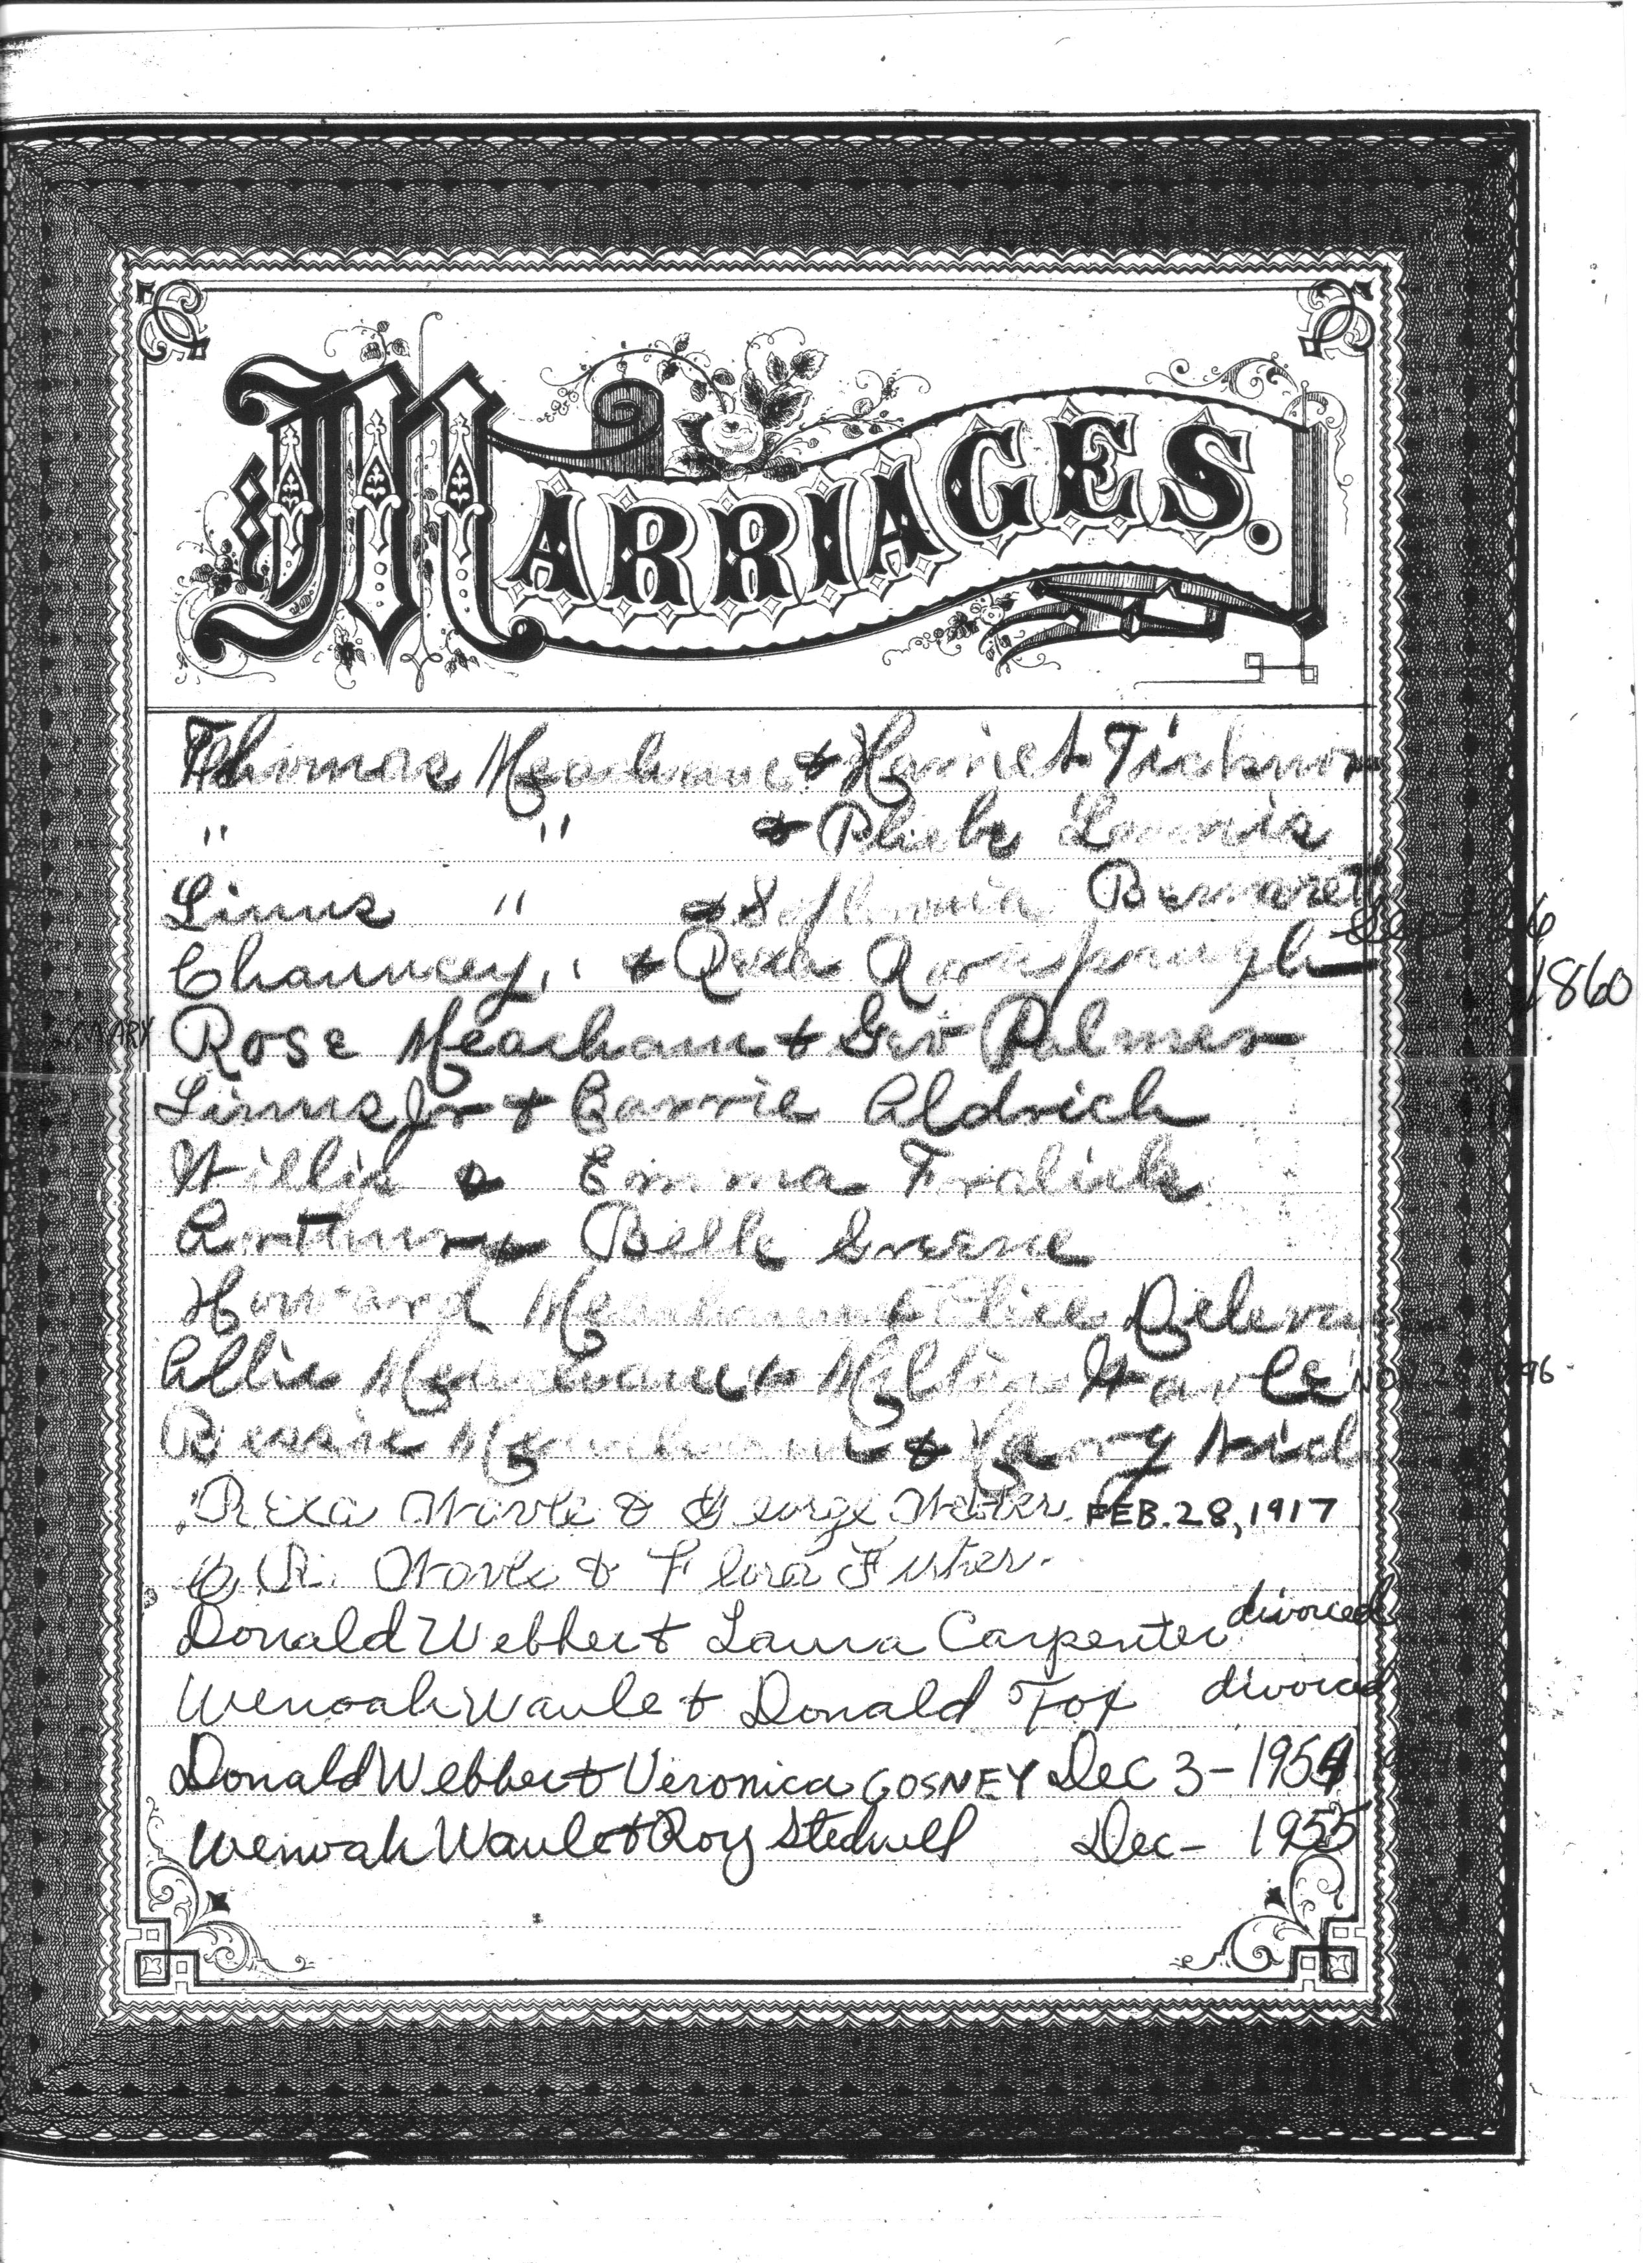 MARRIAGES.
Thomas Meacham & Harriet Ticknor
" " & Phebe Loomis
Linus " & Bernarett
Chauncey " & Rexa
1860
MARY Rose Meacham & Geo Palmer
Linus Jr & Carrie Aldrich
Willis & Emma Fralick
Arthur & Belle Greene
Howard Meacham & Alice
Allie Meacham & Milton Wavle 96
Bessie Meacham & Harry
Rexa Wavle & George Weber. FEB. 28, 1917
R. Wavle & Flora
Donald Webber & Laura Carpenter divorced
Wenoah Waule & Donald Fox divorced
Donald Webber & Veronica GOSNEY Dec 3 - 1954
Wenoah Waule & Roy Stedwell Dec - 1955